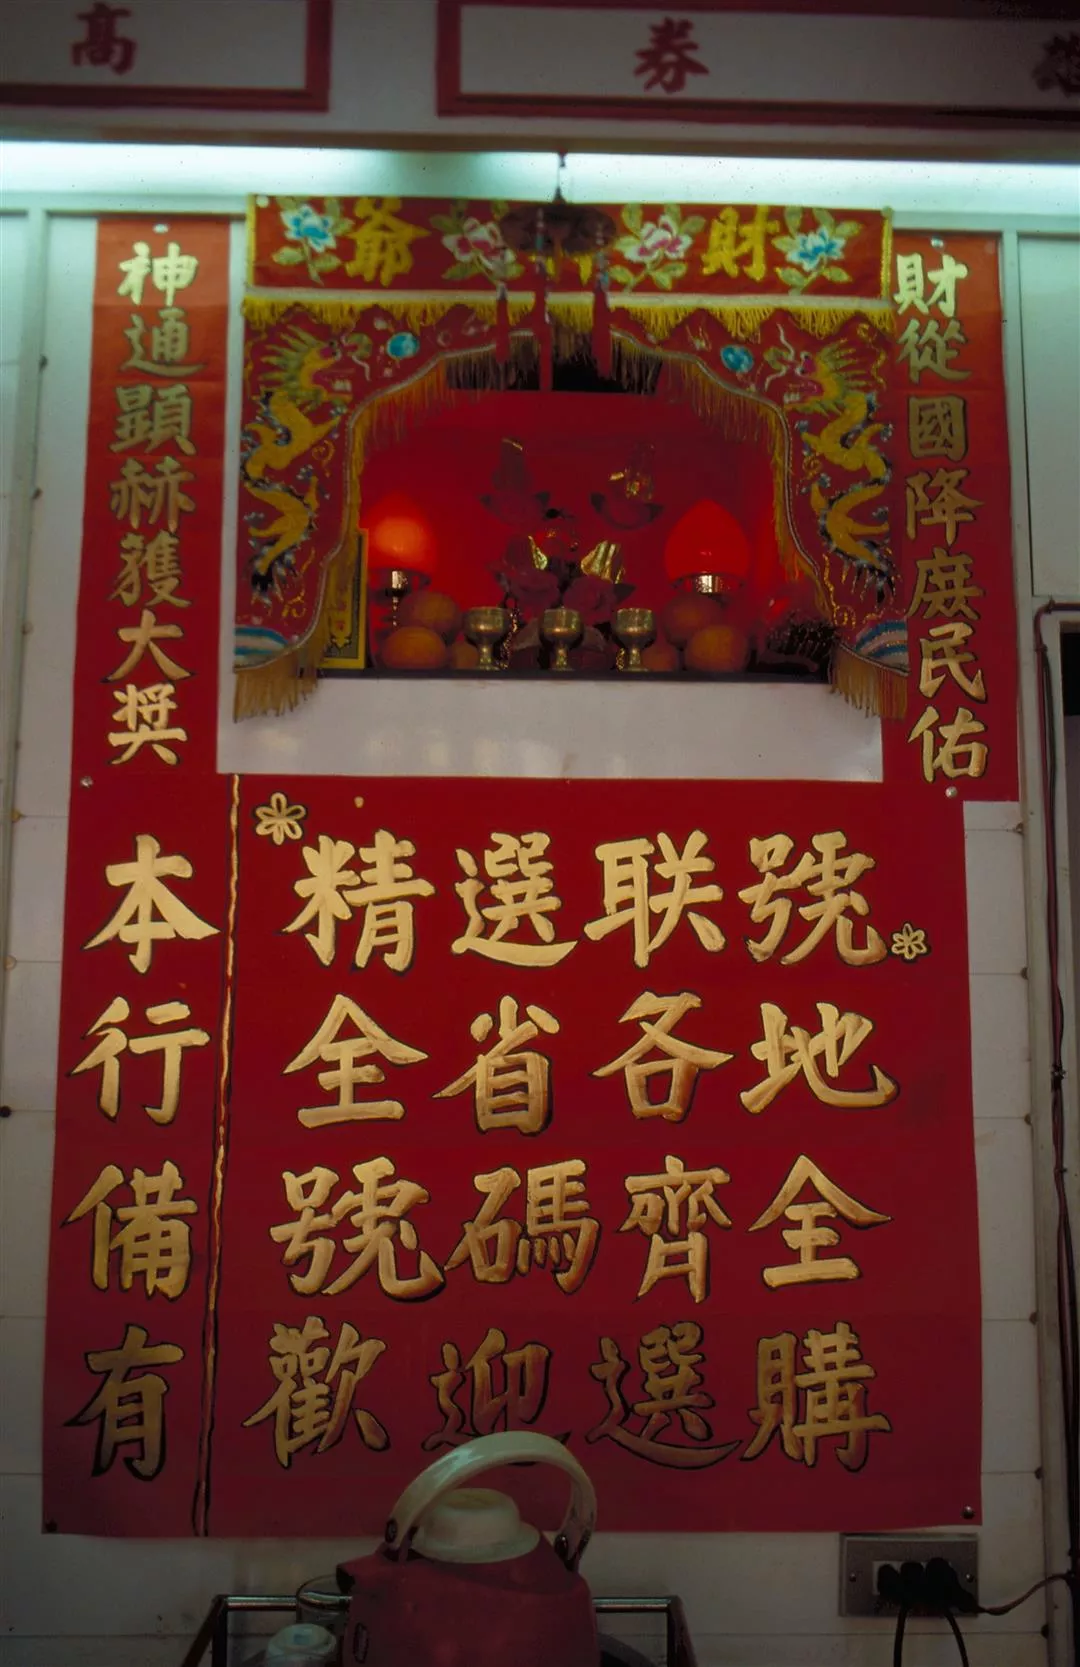 高
券
財神爺
財從國降庶民佑
神通顯赫獲大獎
本行備有
精選联號
全省各地
號碼齊全
歡迎選購